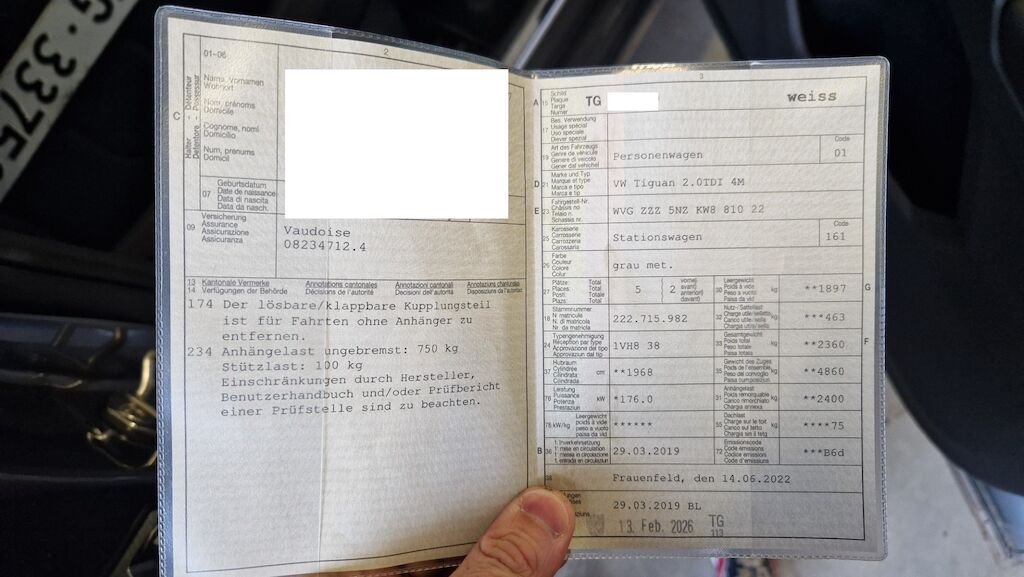 G·3375
2
01-06
C
Halter - Détenteur
Detentore - Possessur
Name, Vornamen
Wohnort
Nom, prénoms
Domicile
Cognome, nomi
Domicilio
Num, prenums
Domicil
07
Geburtsdatum
Date de naissance
Data di nascita
Data da nasch.
09
Versicherung
Assurance
Assicurazione
Assicuranza
Vaudoise
08234712.4
13 Kantonale Vermerke Annotations cantonales Annotazioni cantonali Annotaziuns chantunalas
14 Verfügungen der Behörde Décisions de l'autorité Decisioni dell'autorità Disposiziuns da l'autoritad
174 Der lösbare/klappbare Kupplungsteil
ist für Fahrten ohne Anhänger zu
entfernen.
234 Anhängelast ungebremst: 750 kg
Stützlast: 100 kg
Einschränkungen durch Hersteller,
Benutzerhandbuch und/oder Prüfbericht
einer Prüfstelle sind zu beachten.
3
A 15
Schild
Plaque
Targa
Numer
TG
weiss
17
Bes. Verwendung
Usage spécial
Uso speciale
Diever spezial
19
Art des Fahrzeugs
Genre de véhicule
Genere di veicolo
Gener dal vehichel
Personenwagen
Code
01
D 21
Marke und Typ
Marque et type
Marca e tipo
Marca e tip
VW Tiguan 2.0TDI 4M
E 23
Fahrgestell-Nr.
Châssis no
Telaio n.
Schassis nr.
WVG ZZZ 5NZ KW8 810 22
25
Karosserie
Carrosserie
Carrozzeria
Carossaria
Stationswagen
Code
161
26
Farbe
Couleur
Colore
Colur
grau met.
27
Plätze: Total
Places: Total
Posti: Totale
Plazs: Total
5
2
vorne)
avant)
anteriori)
davant)
30
Leergewicht
Poids à vide
Peso a vuoto
Paisa da vid
kg
**1897
G
18
Stammnummer
N matricule
N. matricola
Nr. da matricla
222.715.982
32
Nutz-/Sattellast
Charge utile/sellette
Carico utile/sella
Chargia utila/sella
kg
***463
24
Typengenehmigung
Réception par type
Approvazione del tipo
Approvaziun dal tip
1VH8 38
33
Gesamtgewicht
Poids total
Peso totale
Paisa totala
kg
**2360
F
37
Hubraum
Cylindrée
Cilindrata
Cilindrada
cm³
**1968
35
Gewicht des Zuges
Poids de l'ensemble
Peso del convoglio
Paisa cumposiziun
kg
**4860
76
Leistung
Puissance
Potenza
Prestaziun
kW
*176.0
31
Anhängelast
Poids remorquable
Carico rimorchiato
Chargia annexa
kg
**2400
78 kW/kg
Leergewicht
poids à vide
peso a vuoto
paisa da vid
******
55
Dachlast
Charge sur le toit
Carico sul tetto
Chargia sin il tetg
kg
****75
B 36
1. Inverkehrsetzung
1. mise en circulation
1. messa in circolazione
1. entrada en circulaziun
29.03.2019
72
Emissionscode
Code émissions
Codice emissioni
Code d'emissiuns
***B6d
38
Frauenfeld, den 14.06.2022
29.03.2019 BL
13. Feb. 2026
TG
113